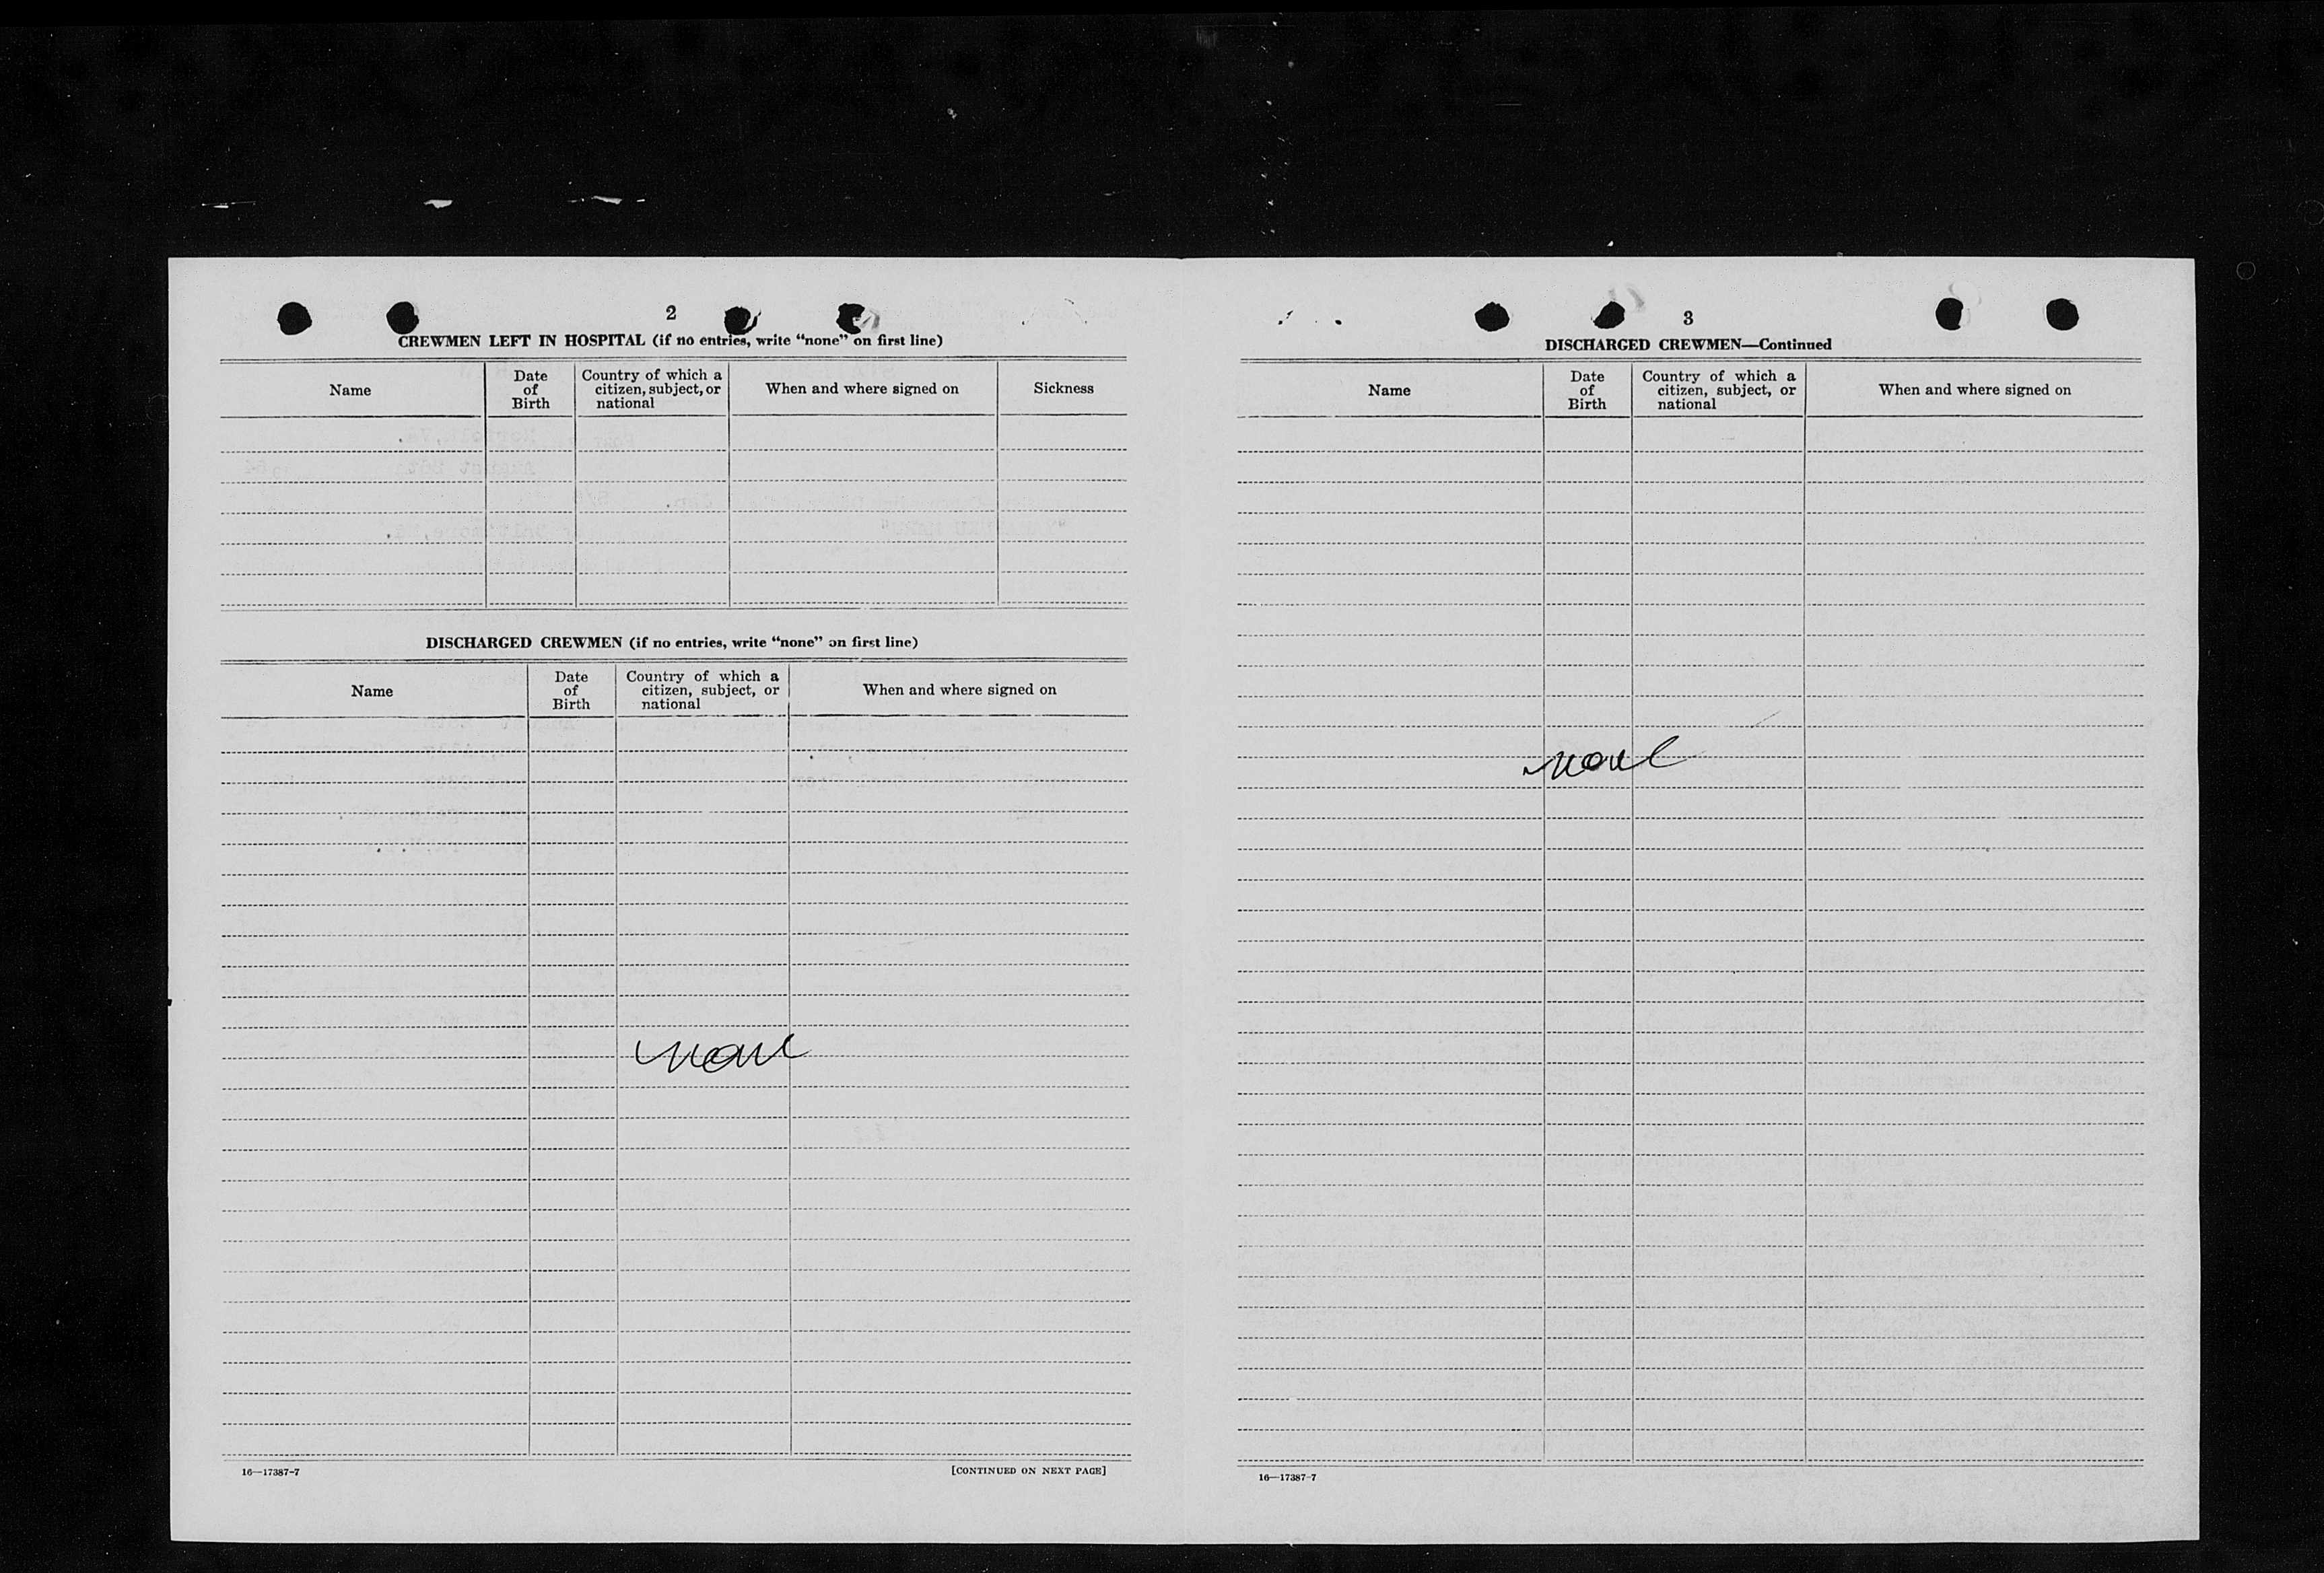 2
CREWMEN LEFT IN HOSPITAL (if no entries, write “none” on first line)
Name
Date of Birth
Country of which a citizen, subject, or national
When and where signed on
Sickness
DISCHARGED CREWMEN (if no entries, write “none” on first line)
Name
Date of Birth
Country of which a citizen, subject, or national
When and where signed on
none
16—17387-7
[CONTINUED ON NEXT PAGE]
3
DISCHARGED CREWMEN—Continued
Name
Date of Birth
Country of which a citizen, subject, or national
When and where signed on
none
16—17387-7